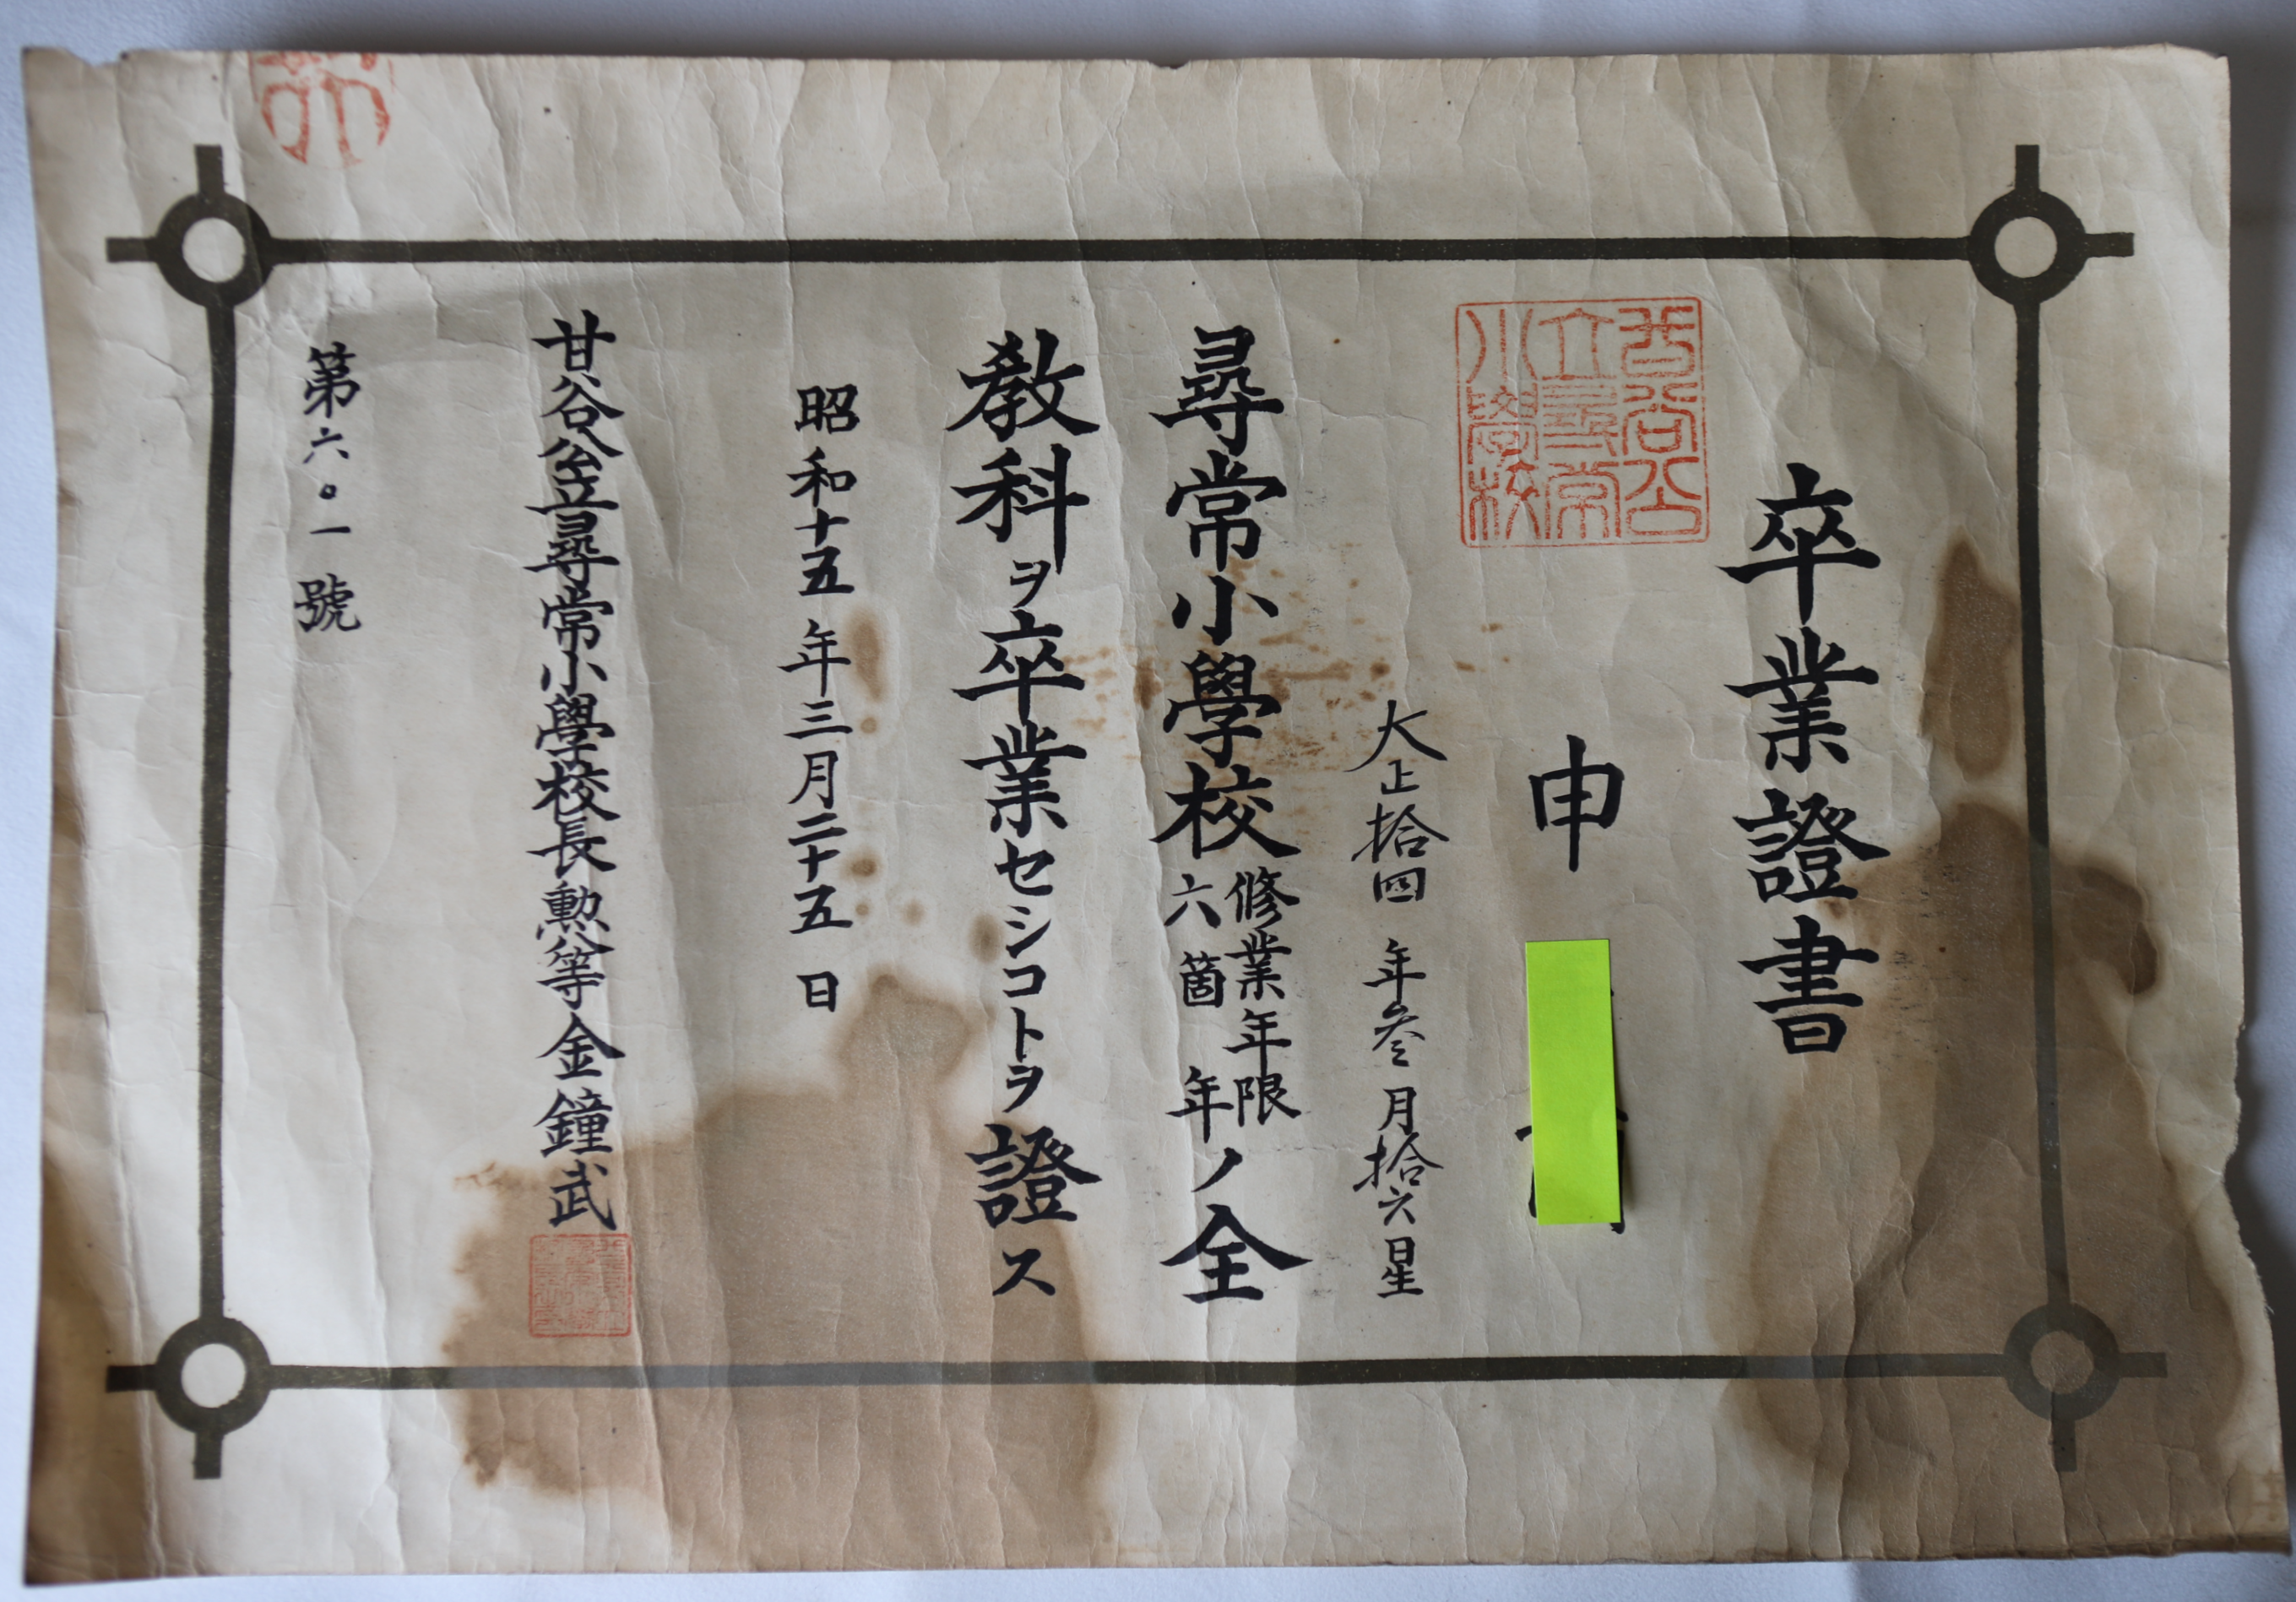 卒業證書
申
大正拾四年叄月拾六日生
尋常小學校修業年限六箇年ノ全
敎科ヲ卒業セシコトヲ證ス
昭和十五年三月二十五日
甘谷公立尋常小學校長勲八等金鐘武
第六〇一號
甘谷公
立尋常
小學校